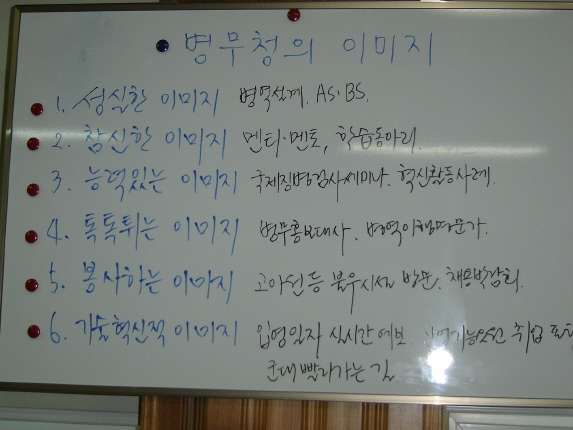 병무청의 이미지
1. 성실한 이미지 병역설계. AS·BS.
2. 참신한 이미지 멘티·멘토, 학습동아리.
3. 능력있는 이미지 국제징병검사세미나. 혁신활동사례.
4. 톡톡튀는 이미지 병무홍보대사. 병역이행명문가.
5. 봉사하는 이미지 고아원등 불우시설 방문. 채용박람회.
6. 기술혁신적 이미지 입영일자 실시간 예보. 취업
군대 빨리가는 길.